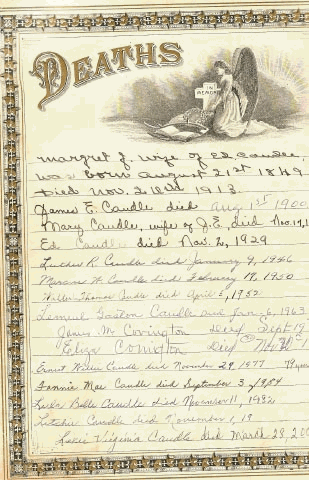 DEATHS
IN
MEMORY
Margret J. wife of Ed Caudle,
was born August 21st 1849
Died Nov. 1913.
James E. Caudle died Aug 1st 1900,
Mary Caudle, wife of J.E, died Nov.
Ed Caudle died Nov. 2, 1929
Luther R Caudle died January 9, 1946
Caudle died February 19, 1950
Thomas Caudle died April 1952
Lemuel Gaston Caudle died Jan 6, 1963
James M Covington Decd Sept 19
Eliza Covington Decd
Ernest Caudle died November 29, 1977
Fannie Mae Caudle died September 3, 1984
Lula Belle Caudle died November 11, 1992
Caudle died November 1, 19
Virginia Caudle died March 28, 200